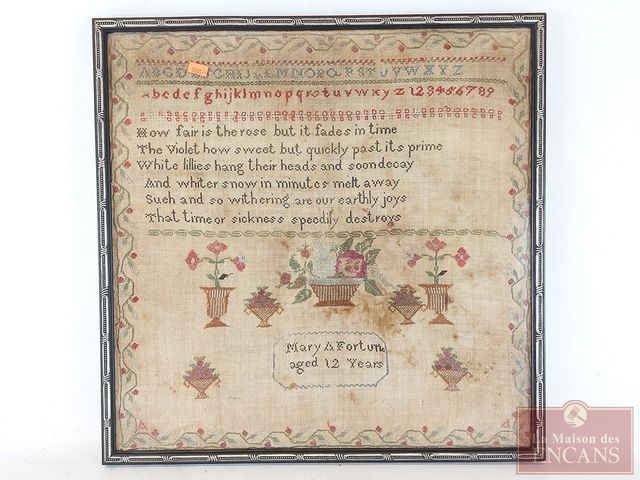 ABCDEFGHIJKLMNOPQRSTUVWXYZ
abcdefghijklmnopqrstuvwxyz 123456789
How fair is the rose but it fades in time
The Violet how sweet but quickly past its prime
White lillies hang their heads and soon decay
And whiter snow in minutes melt away
Such and so withering are our earthly joys
That time or sickness speedily destroys
Mary A Fortune
aged 12 Years
La Maison des
ENCANS